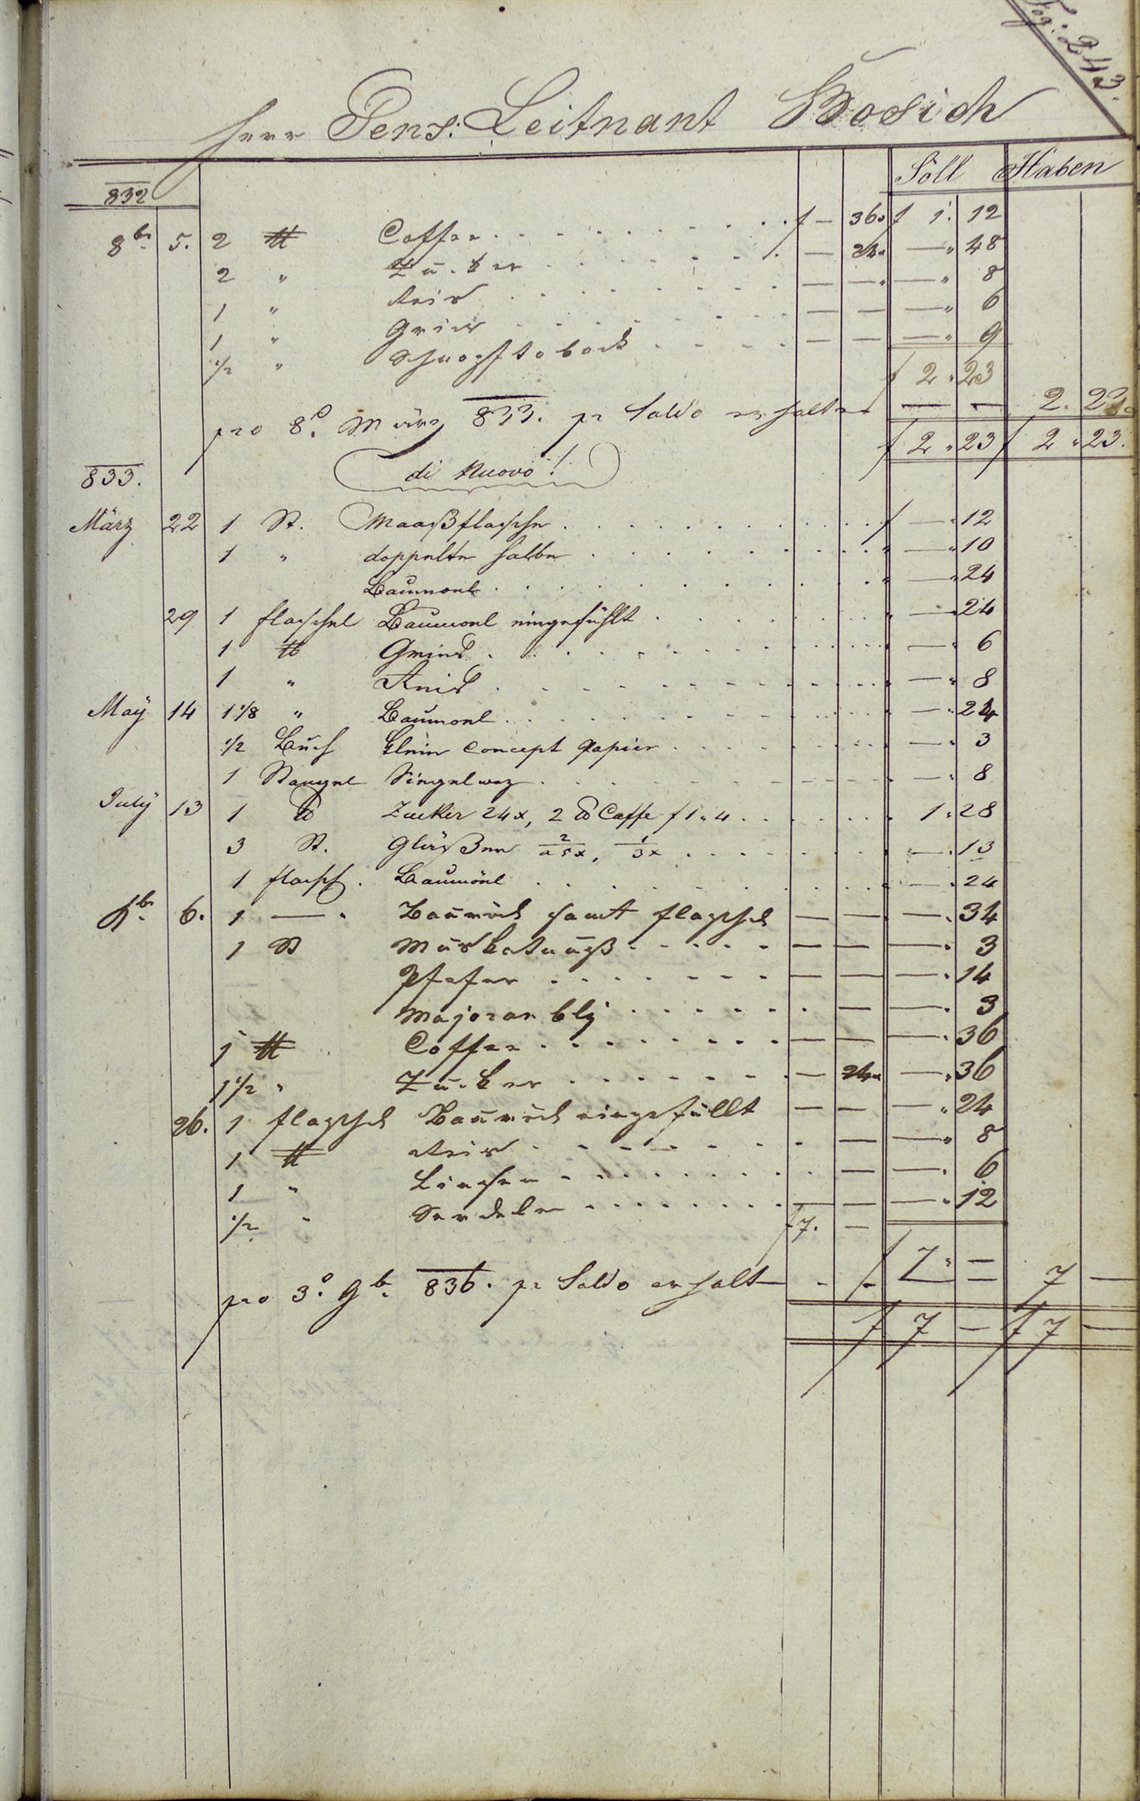 Pag: 243.
Herr Pens: Leitnant Bosich
Soll Haben
832
8br 5. 2 ℔ Caffee f — 36 f 1. 12
2 " Zucker — 24 — " 48
1 " Reis — — — " 8
1 " Gries — — — " 6
1/2 " Schnopftoback — — — " 9
f 2 . 23
pro 8o März 833. pr Saldo erhalten — — 2. 23
f 2 . 23 f 2 . 23.
833. di Nuovo!
März 22 1 St. Maaßflasche f — " 12
1 " doppelte halbe " — " 10
Baumoel " — " 24
29 1 flaschel Baumoel eingefühlt — " 24
1 ℔ Gries — " 6
1 " Reis — " 8
May 14 1 1/8 " Baumoel — " 24
1/2 Buch klein Concept Papier — " 3
1 Stangel Siegelwax — " 8
July 13 1 ℔ Zucker 24x, 2 ℔ Caffe f 1 " 4 1 " 28
3 St. Gläßer 2 a 5x, 1 3x — " 13
1 flasch. Baumöel — " 24
6. 1 — " Baumöel samt flaschel — — — " 34
1 St Muskatnuß — — — " 3
Pfefer — — — " 14
Majoran bly — — " 3
1 ℔ Coffee — — — " 36
1 1/2 " Zucker — 24 — " 36
26. 1 flaschel Baumöel eingefüllt — — — " 24
1 ℔ Reis — — " 8
1 " Linsen — — " 6
1/2 " Sardelen — — — " 12
f 7. —
f 7 " —
pro 3o 9br 836. pr Saldo erhalt — — — 7 —
f 7 — f 7 —